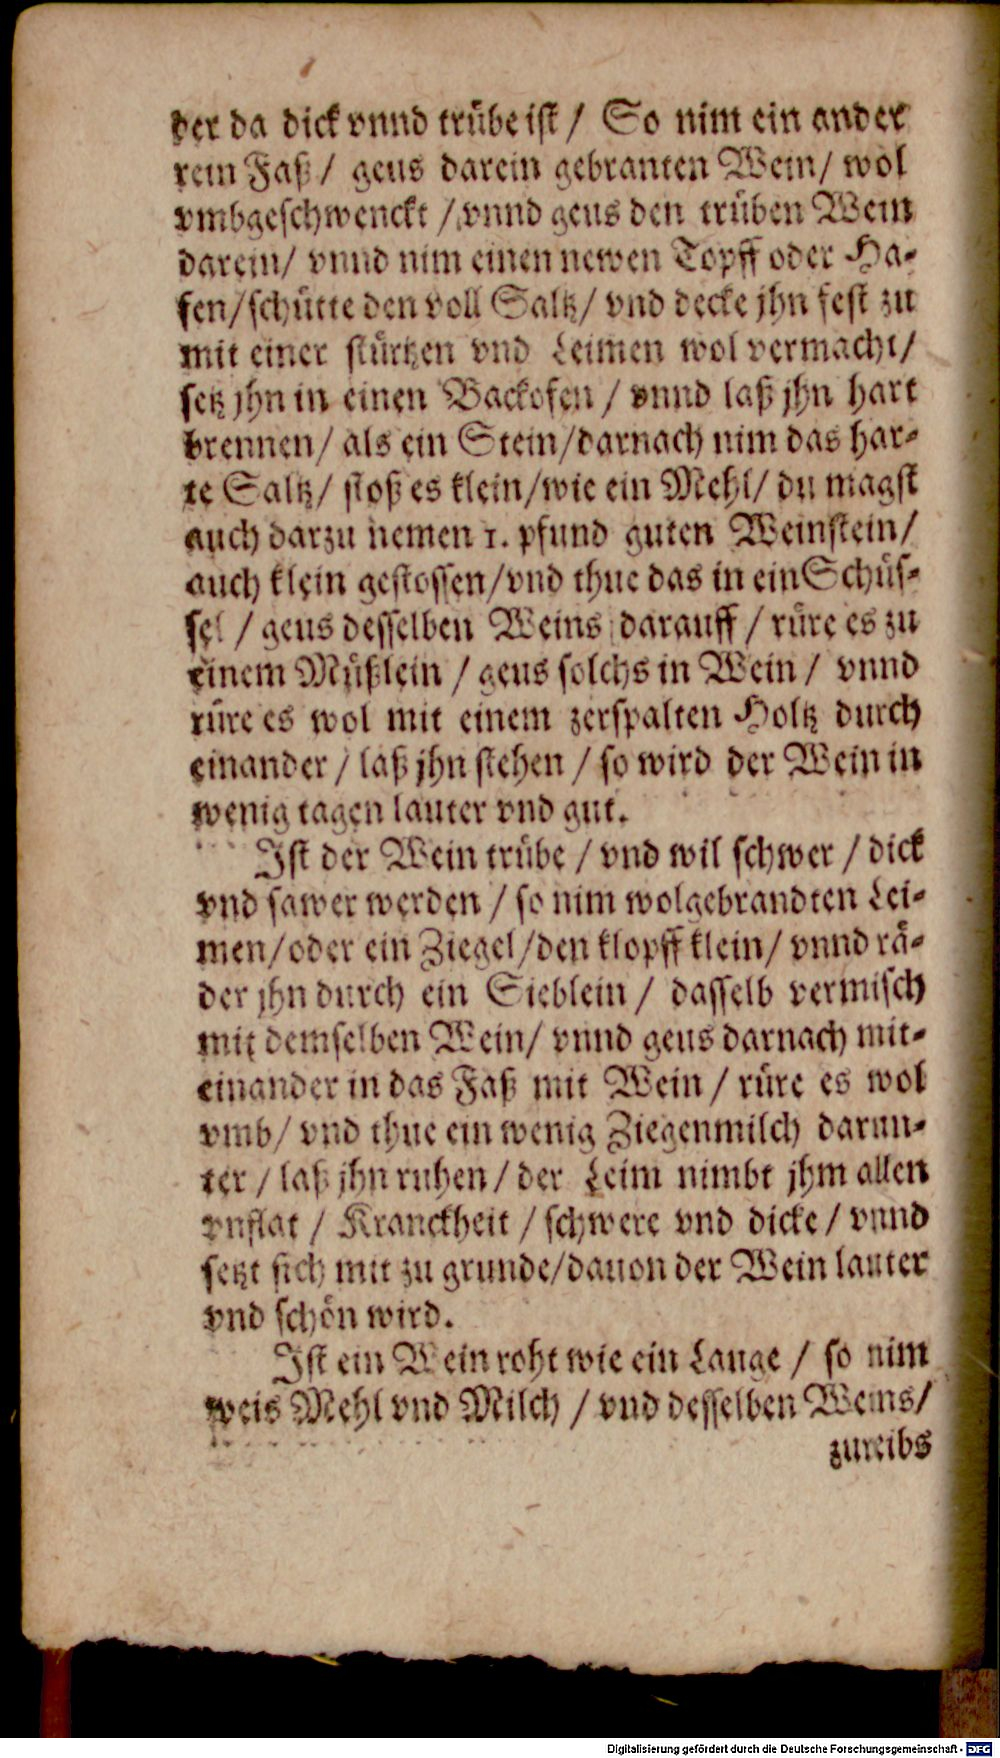 der da dick vnnd trübe ist / So nim ein ander
rein Faß / geus darein gebranten Wein / wol
vmbgeschwenckt / vnnd geus den trüben Wein
darein / vnnd nim einen newen Topff oder Ha-
fen / schütte den voll Saltz / vnd decke jhn fest zu
mit einer stürtzen vnd Leimen wol vermacht /
setz jhn in einen Backofen / vnnd laß jhn hart
brennen / als ein Stein / darnach nim das har-
te Saltz / stoß es klein / wie ein Mehl / du magst
auch darzu nemen 1. pfund guten Weinstein /
auch klein gestossen / vnd thue das in ein Schüs-
sel / geus desselben Weins darauff / rüre es zu
einem Müßlein / geus solchs in Wein / vnnd
rüre es wol mit einem zerspalten Holtz durch
einander / laß jhn stehen / so wird der Wein in
wenig tagen lauter vnd gut.
Ist der Wein trübe / vnd wil schwer / dick
vnd sawer werden / so nim wolgebrandten Lei-
men / oder ein Ziegel / den klopff klein / vnnd rä-
der jhn durch ein Sieblein / dasselb vermisch
mit demselben Wein / vnnd geus darnach mit-
einander in das Faß mit Wein / rüre es wol
vmb / vnd thue ein wenig Ziegenmilch darun-
ter / laß jhn ruhen / der Leim nimbt jhm allen
vnflat / Kranckheit / schwere vnd dicke / vnnd
setzt sich mit zu grunde / dauon der Wein lauter
vnd schön wird.
Ist ein Wein roht wie ein Lauge / so nim
weis Mehl vnd Milch / vnd desselben Weins /
zureibs
Digitalisierung gefördert durch die Deutsche Forschungsgemeinschaft - DFG